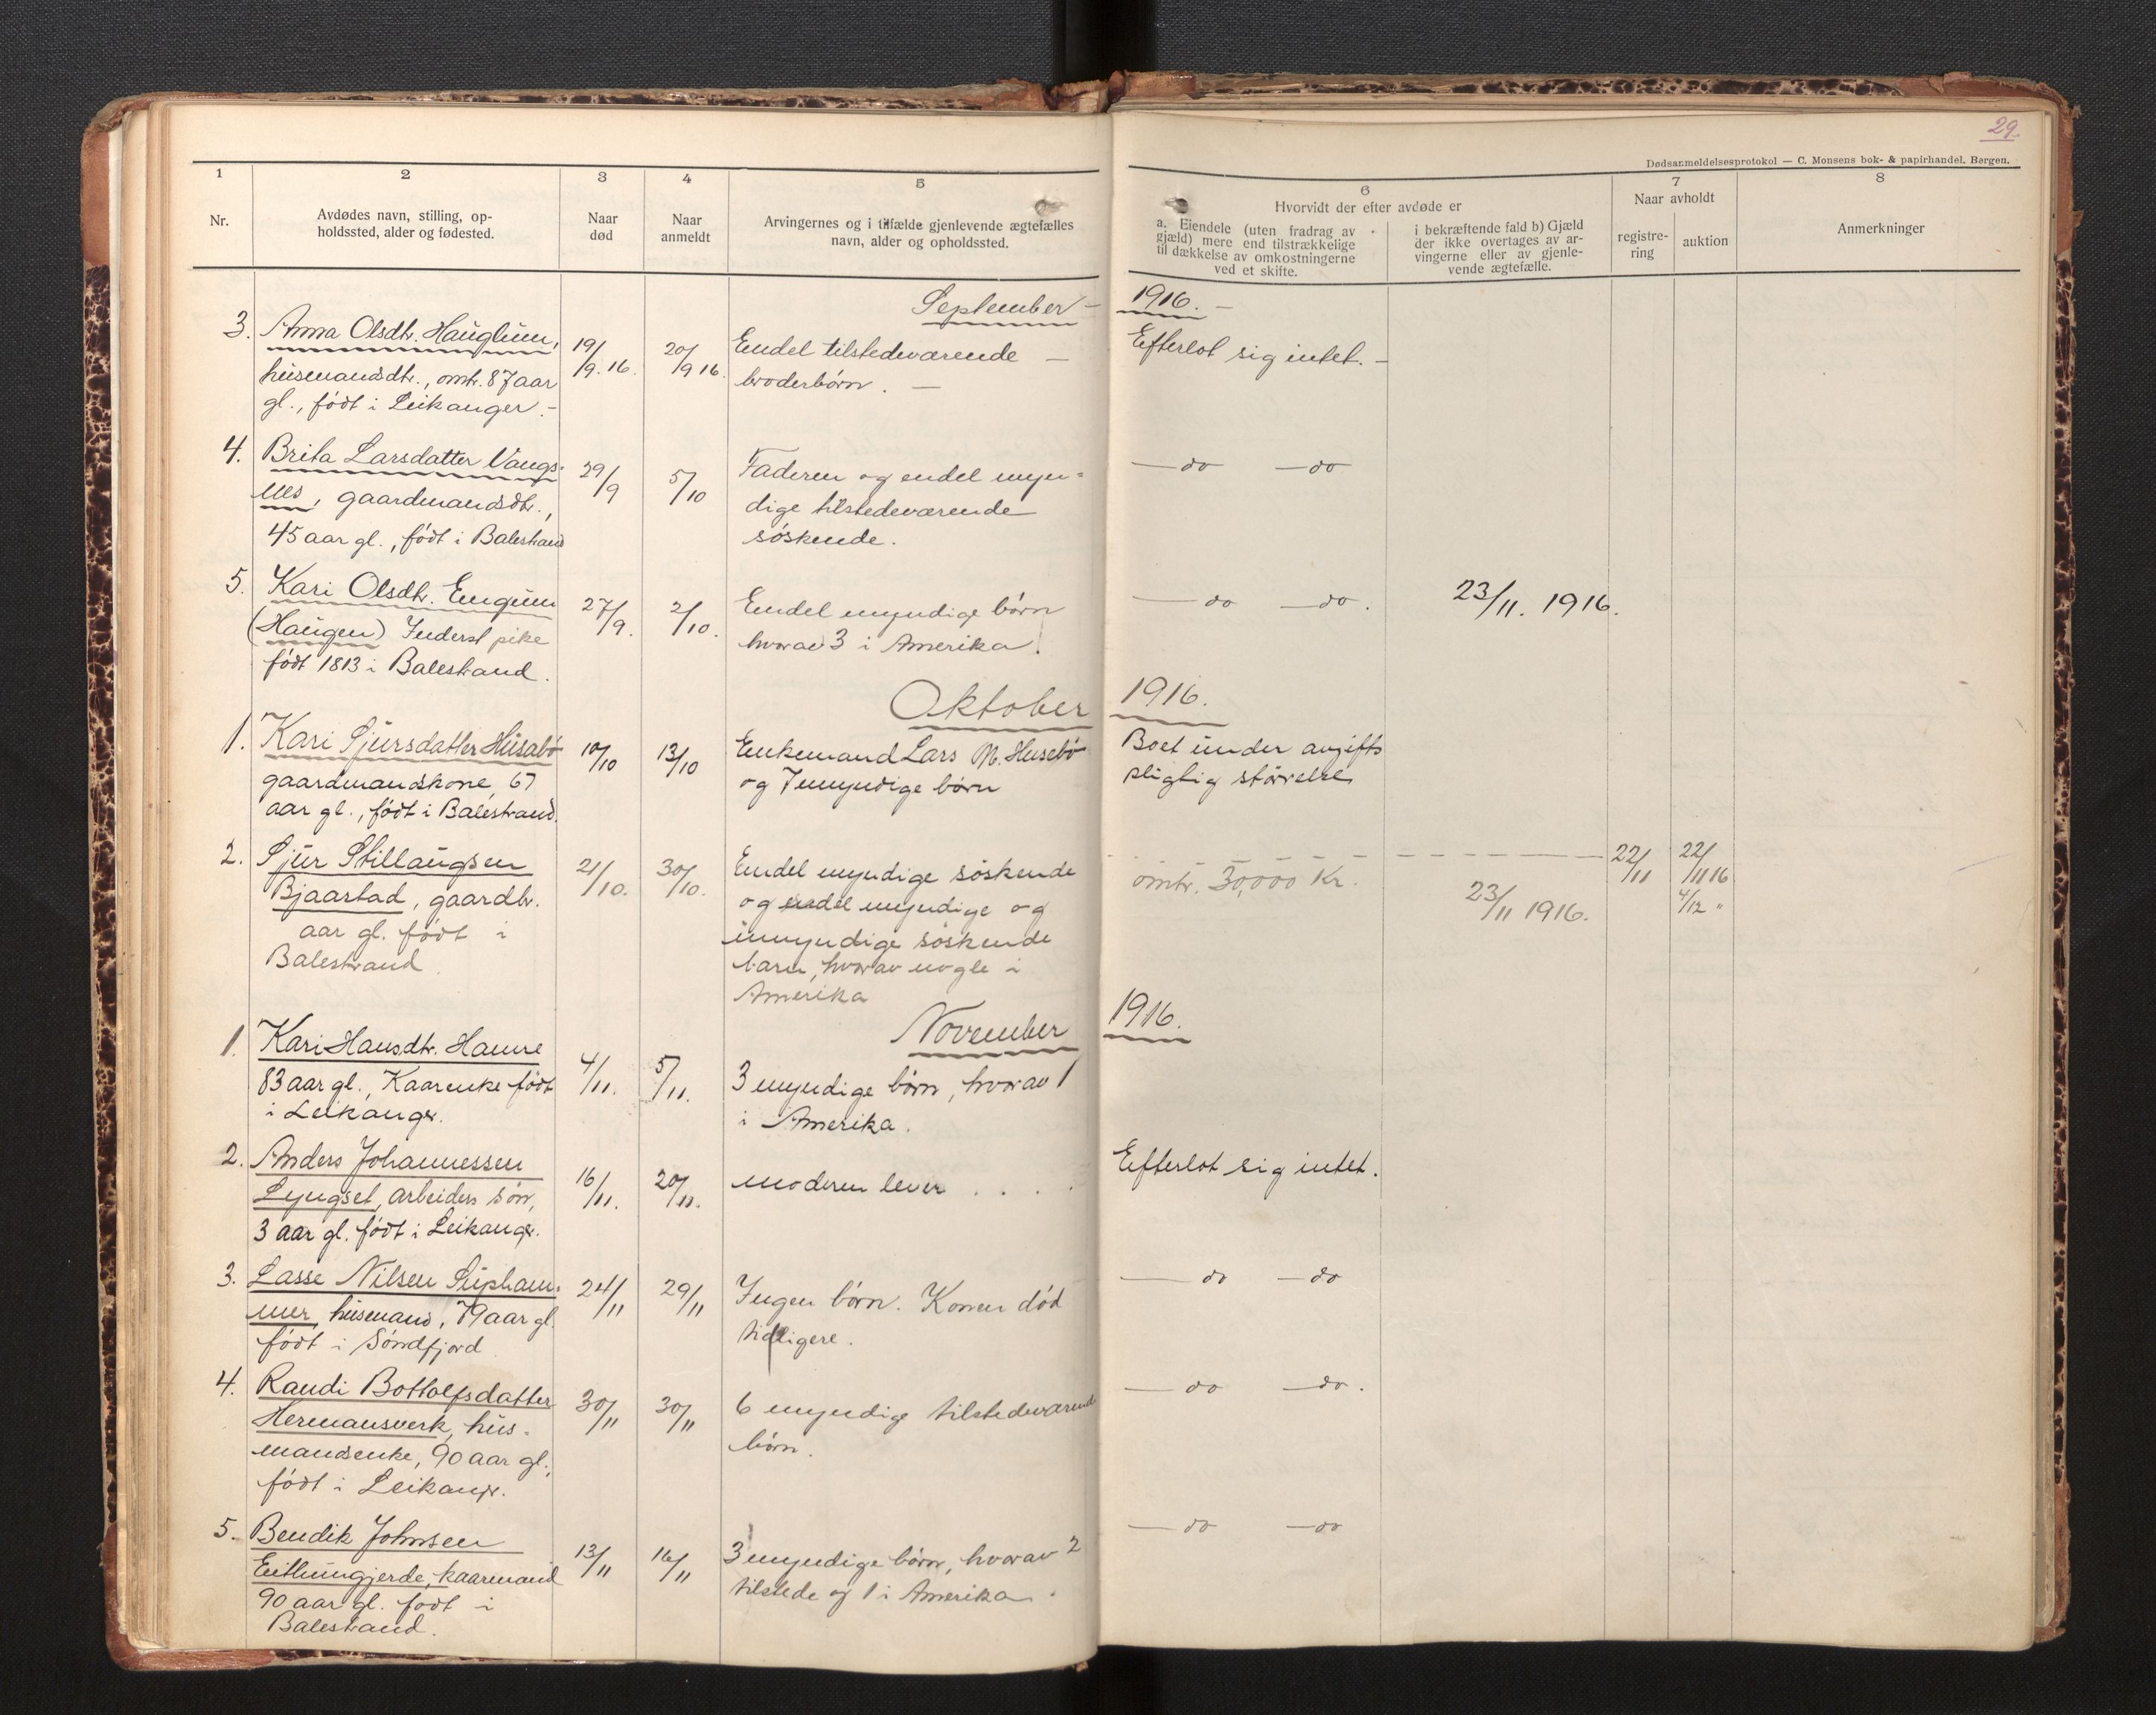 29.
Dødsanmeldelsesprotokol — C. Monsens bok- & papirhandel, Bergen.
1 2 3 4 5 6 7 8
Nr.
Avdødes navn, stilling, op-
holdssted, alder og fødested.
Naar
død
Naar
anmeldt
Arvingernes og i tilfælde gjenlevende ægtefælles
navn, alder og opholdssted.
Hvorvidt der efter avdøde er
a. Eiendele (uten fradrag av
gjæld) mere end tilstrækkelige
til dækkelse av omkostningerne
ved et skifte.
i bekræftende fald b) Gjæld
der ikke overtages av ar-
vingerne eller av gjenle-
vende ægtefælle.
Naar avholdt
registre-
ring
auktion
Anmerkninger
September — 1916. —
3. Anna Olsdtr. Hauglum,
husmandsdtr., omtr. 87 aar
gl., født i Leikanger. —
19/9. 16.
20/9 16.
Endel tilstedeværende —
broderbørn. —
Efterlot sig intet. —
4. Brita Larsdatter Vangs-
nes, gaardmandsdtr.,
45 aar gl., født i Balestrand
29/9
5/10
Faderen og endel myn=
dige tilstedeværende
søskende.
— do — do
5. Kari Olsdtr. Engum
(Haugen) Inderst pike
født 1813 i Balestrand.
27/9.
2/10.
Endel myndige børn
hvorav 3 i Amerika.
— do — do.
23/11. 1916.
Oktober 1916.
1. Kari Sjursdatter Husabø
gaardmandskone, 67
aar gl., født i Balestrand.
10/10
13/10
Enkemand Lars M. Husebø
og 7 myndige børn
Boet under avgifts
pligtig størrelse
2. Sjur Stillaugsen
Bjaastad, gaardbr.
aar gl. født i
Balestrand
21/10.
30/10.
Endel myndige søskende
og endel myndige og
umyndige søskende
barn, hvorav nogle i
Amerika
omtr. 30,000 Kr.
23/11 1916.
22/11
22/11 16
4/12 "
November 1916.
1. Kari Hansdtr. Hamre
83 aar gl., Kaarenke født
i Leikanger.
4/11.
5/11.
3 myndige børn, hvorav 1
i Amerika.
2. Anders Johannessen
Lyngset, arbeiders søn,
3 aar gl. født i Leikanger.
16/11.
20/11.
moderen lever . . . .
Efterlot sig intet.
3. Lasse Nilsen Supham-
mer, husmand, 79 aar gl.
født i Søndfjord
24/11
29/11
Ingen børn. Konen død
tidligere.
— do — do
4. Randi Bottolfsdatter
Hermansverk, hus-
mandsenke, 90 aar gl.,
født i Leikanger.
30/11
30/11
6 myndige tilstedeværend
børn.
— do — do.
5. Bendik Johnsen
Eithungjerde, kaarmand
90 aar gl. født i
Balestrand.
13/11
16/11
3 myndige børn, hvorav 2
tilstede og 1 i Amerika.
— do — do